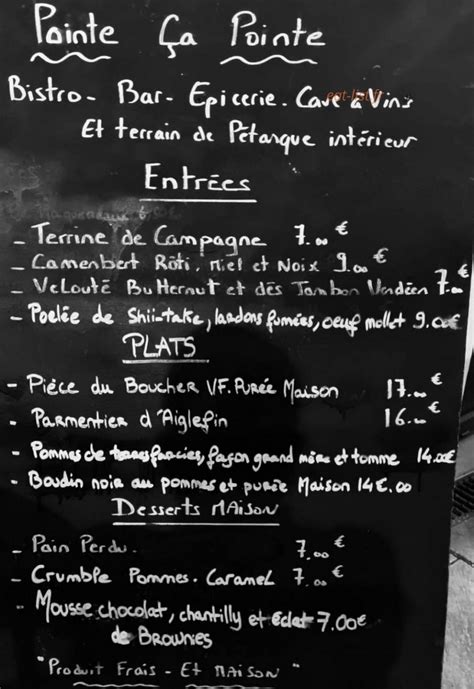 Pointe Ça Pointe
Bistro - Bar - Epicerie - Cave à Vins
Et terrain de Pétanque intérieur
Entrées
- Terrine de Campagne 7.00 €
- Camenbert Rôti, Miel et Noix 9.00 €
- Velouté Butternut et dès Jambon Vendéen 7.00 €
- Poelée de Shii-take, lardons fumées, oeuf mollet 9.00€
PLATS
- Pièce du Boucher VF. Purée Maison 17.00 €
- Parmentier d'Aiglefin 16.00 €
- Pommes de farcies, façon grand mère et tomme 14.00€
- Boudin noir au pommes et purée Maison 14€.00
Desserts MAISON
- Pain Perdu. 7.00 €
- Crumble Pommes. Caramel 7.00 €
- Mousse chocolat, chantilly et éclat 7.00€
de Brownies
"Produit Frais - Et MAISON"